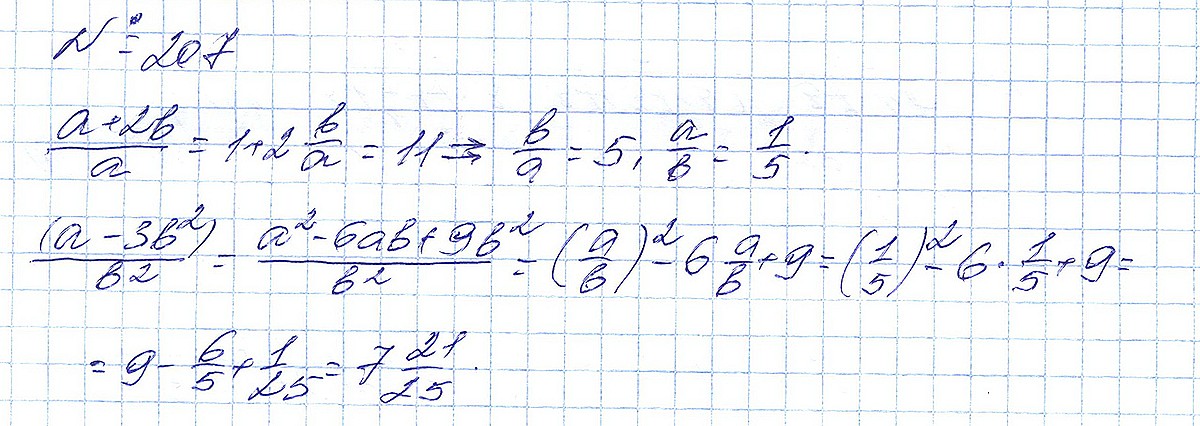 № 207
(a+2b)/a = 1+2 b/a = 11 ⇒ b/a = 5, a/b = 1/5.
(a-3b²)/b² = (a²-6ab+9b²)/b² = (a/b)² - 6 a/b + 9 = (1/5)² - 6 · 1/5 + 9 =
= 9 - 6/5 + 1/25 = 7 21/25.